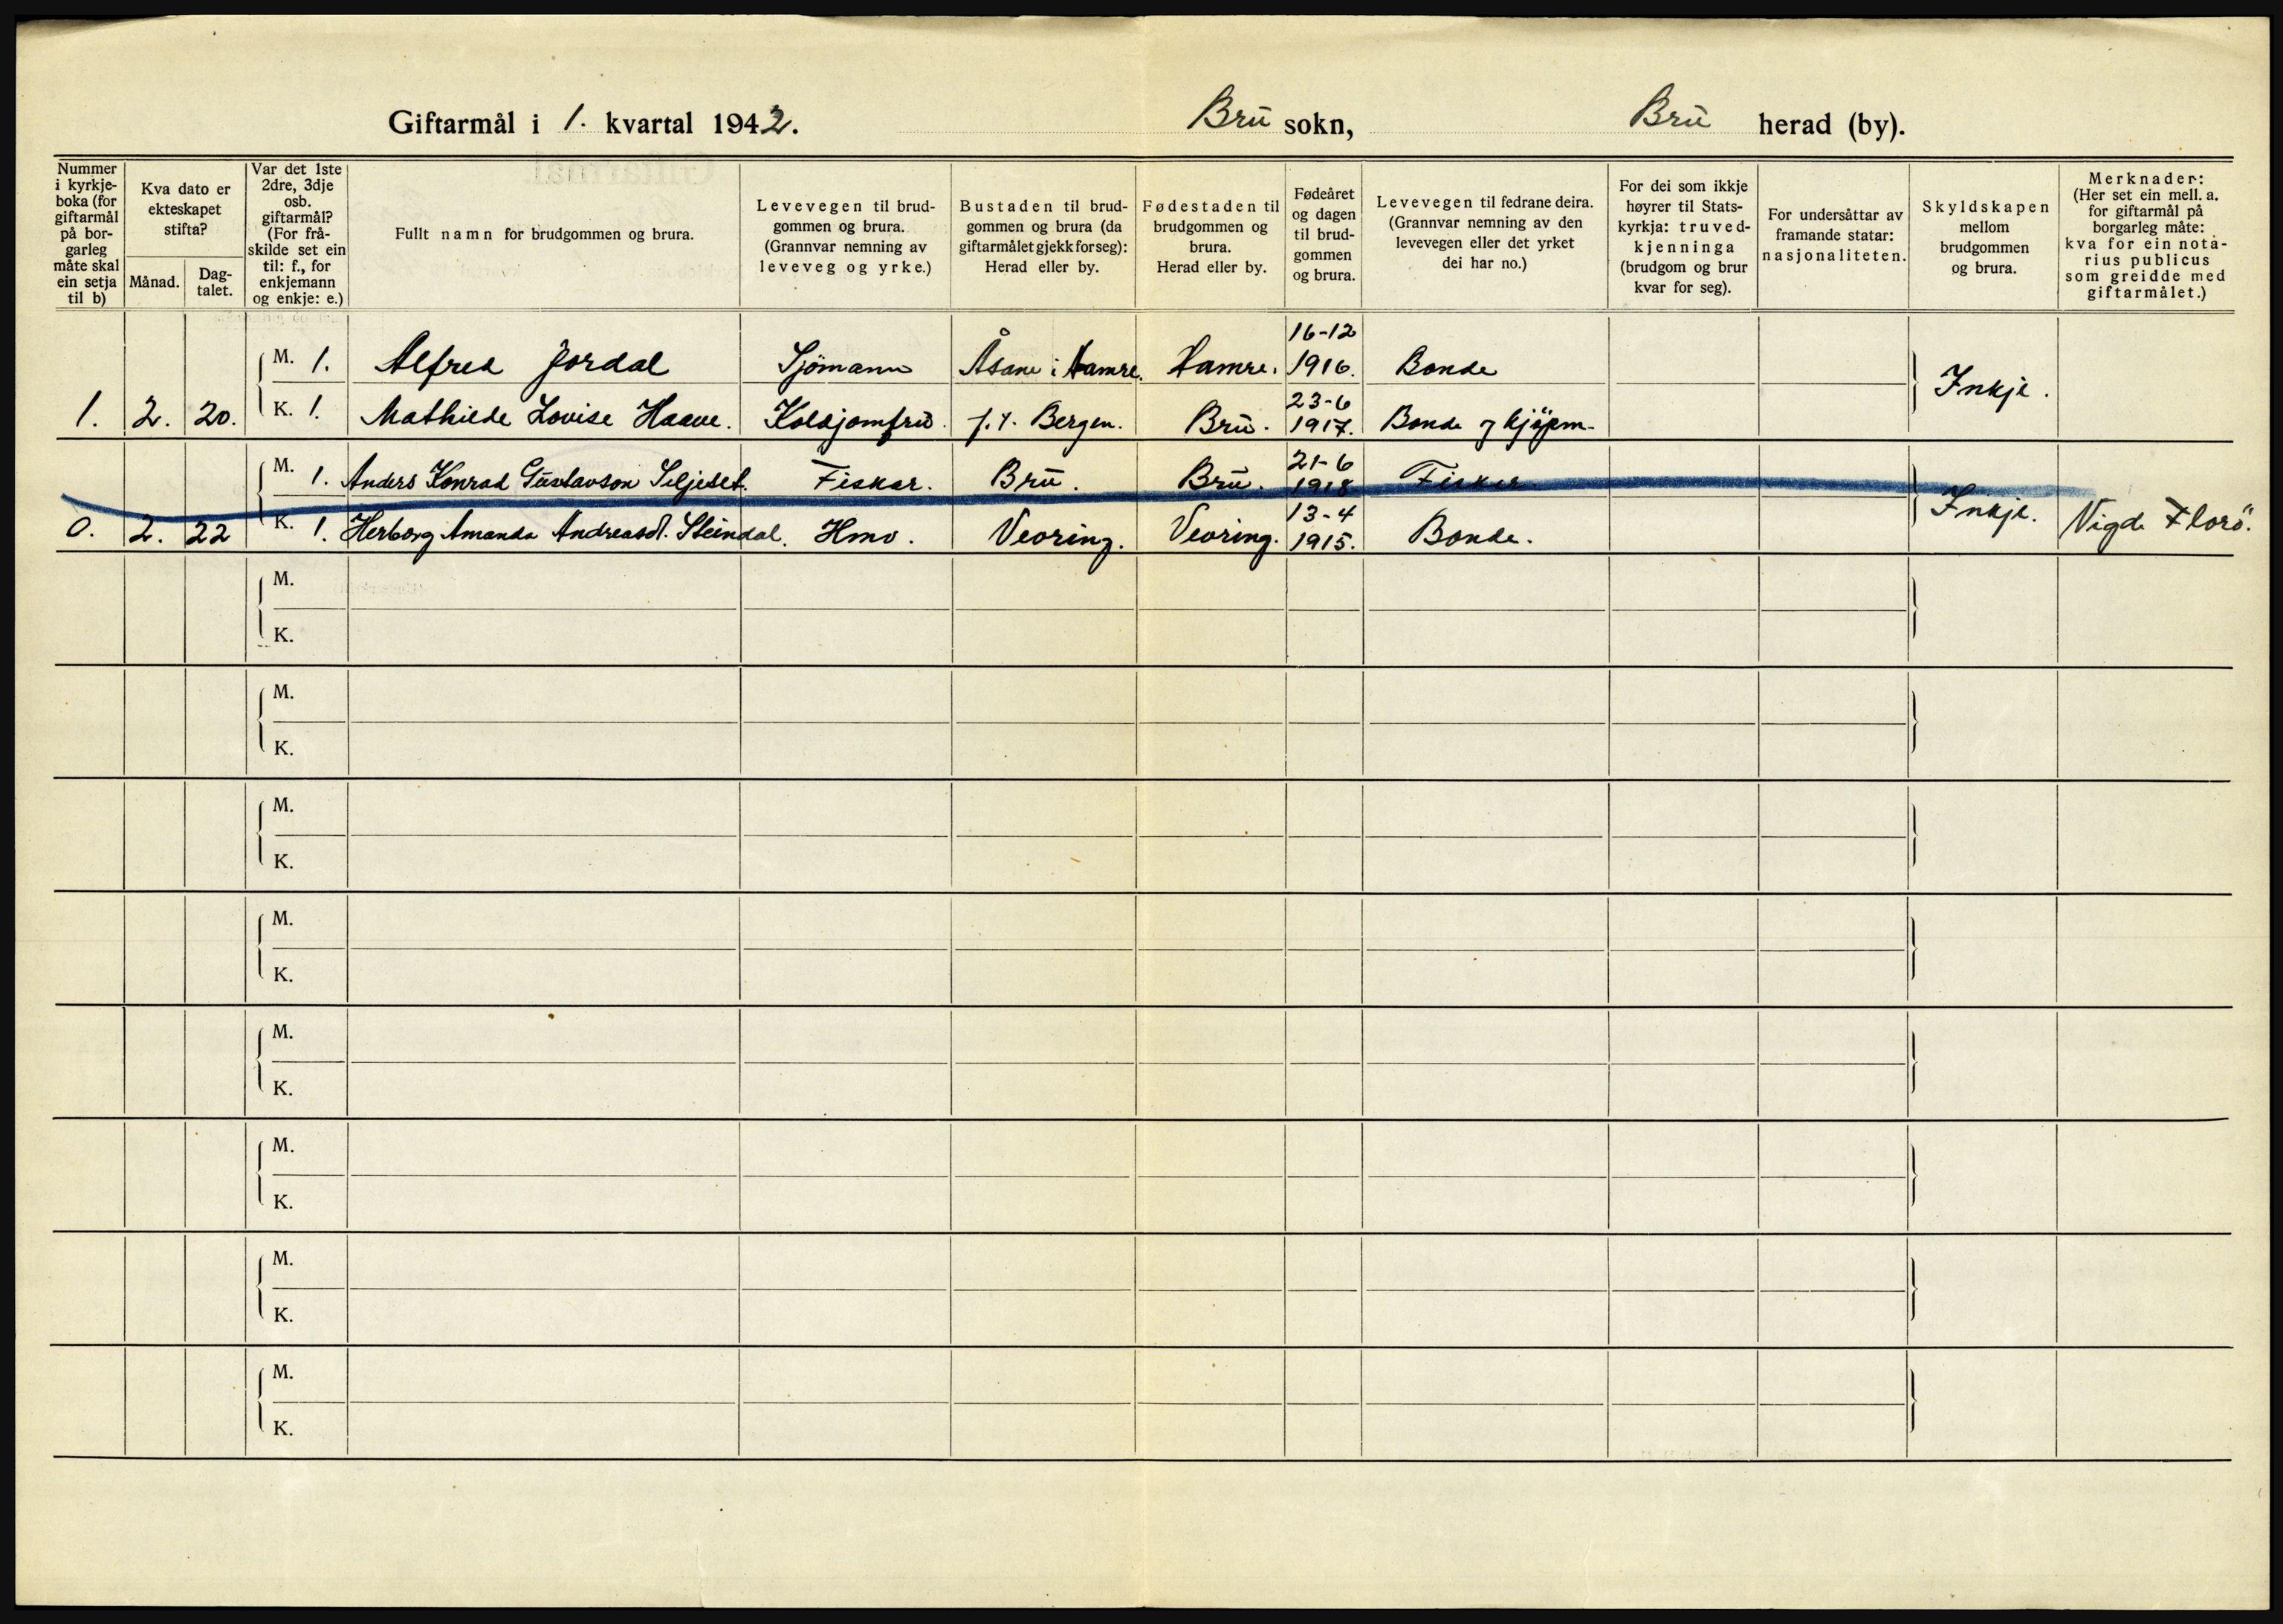 Giftarmål i 1. kvartal 1942. Bru sokn, Bru herad (by).
Nummer i kyrkje-boka (for giftarmål på bor-garleg måte skal ein setja til b)
Kva dato er ekteskapet stifta?
Månad.
Dag-talet.
Var det 1ste 2dre, 3dje osb. giftarmål? (For frå-skilde set ein til: f., for enkjemann og enkje: e.)
Fullt namn for brudgommen og brura.
Levevegen til brud-gommen og brura. (Grannvar nemning av leveveg og yrke.)
Bustaden til brud-gommen og brura (da giftarmålet gjekk for seg): Herad eller by.
Fødestaden til brudgommen og brura. Herad eller by.
Fødeåret og dagen til brud-gommen og brura.
Levevegen til fedrane deira. (Grannvar nemning av den levevegen eller det yrket dei har no.)
For dei som ikkje høyrer til Stats-kyrkja: truved-kjenninga (brudgom og brur kvar for seg).
For undersåttar av framande statar: nasjonaliteten.
Skyldskapen mellom brudgommen og brura.
Merknader: (Her set ein mell. a. for giftarmål på borgarleg måte: kva for ein nota-rius publicus som greidde med giftarmålet.)
M. 1. Alfred Jordal Sjömann Åsane i Hamre. Hamre. 16-12 1916. Bonde
1. 2. 20. K. 1. Mathilde Lovise Haave. Koldjomfru f.t. Bergen. Bru. 23-6 1917. Bonde og kjöpm. Inkje.
M. 1. Anders Konrad Gustavson Seljeset. Fiskar. Bru. Bru. 21-6 1918 Fiskar.
0. 2. 22 K. 1. Herborg Amanda Andreasd. Steindal. Hmo. Vevring. Vevring. 13-4 1915. Bonde. Inkje. Vigde Florö.
M.
K.
M.
K.
M.
K.
M.
K.
M.
K.
M.
K.
M.
K.
M.
K.